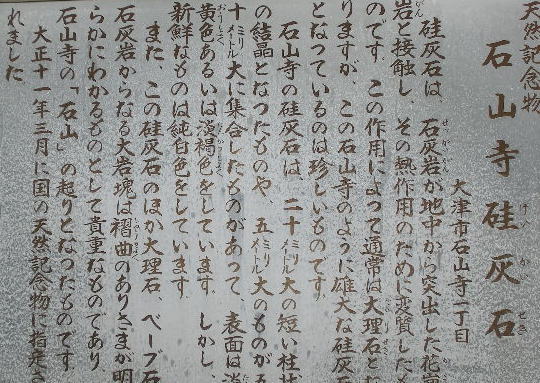 天然記念物
石山寺硅灰石
けいかいせき
大津市石山寺一丁目
硅灰石は、石灰岩が地中から突出した花崗
岩と接触し、その熱作用のために変質した
のです。この作用によって通常は大理石と
りますが、この石山寺のように雄大な硅灰石
となっているのは珍しいものです。
石山寺の硅灰石は、二十ミリメートル大の短い柱状
の結晶となつたものや、五ミリメートル大のものが
十ミリメートル大に集合したものがあって、表面は淡
黄色あるいは淡褐色をしています。しかし、
新鮮なものは純白色をしています。
また、この硅灰石のほか大理石、ベーブ石
石灰岩からなる大岩塊は褶曲のありさまが明
らかにわかるものとして貴重なものであり、
石山寺の「石山」の起りとなったものです。
大正十一年三月に国の天然記念物に指定さ
れました。